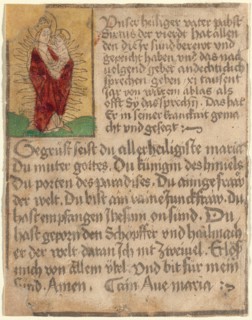 Unser heiliger vater pabst
Sixtus der vierde hat allen
den die ir sund berewt und
gepeicht haben und das nach
volgend gebet andechticlich
sprechen geben xi tausent
Jar von warem ablas als
offt Sy das sprechn. Das hat
Er in seiner kranckait gema
cht und gesegt:
Gegrüst seist du aller heiligste maria
Du muter gottes. Du künigin des himels
Du porten des paradises. Du ainige fraw
der welt. Du bist ain raine Junckfraw. du
hast empfangen Jhesum on sund. Du
hast geporn den Schöpffer und hailmach
er der welt daran Ich nit zweivel. Erlös
mich von Allem übel. Und bit für mein
Sünd. Amen. Ave maria: